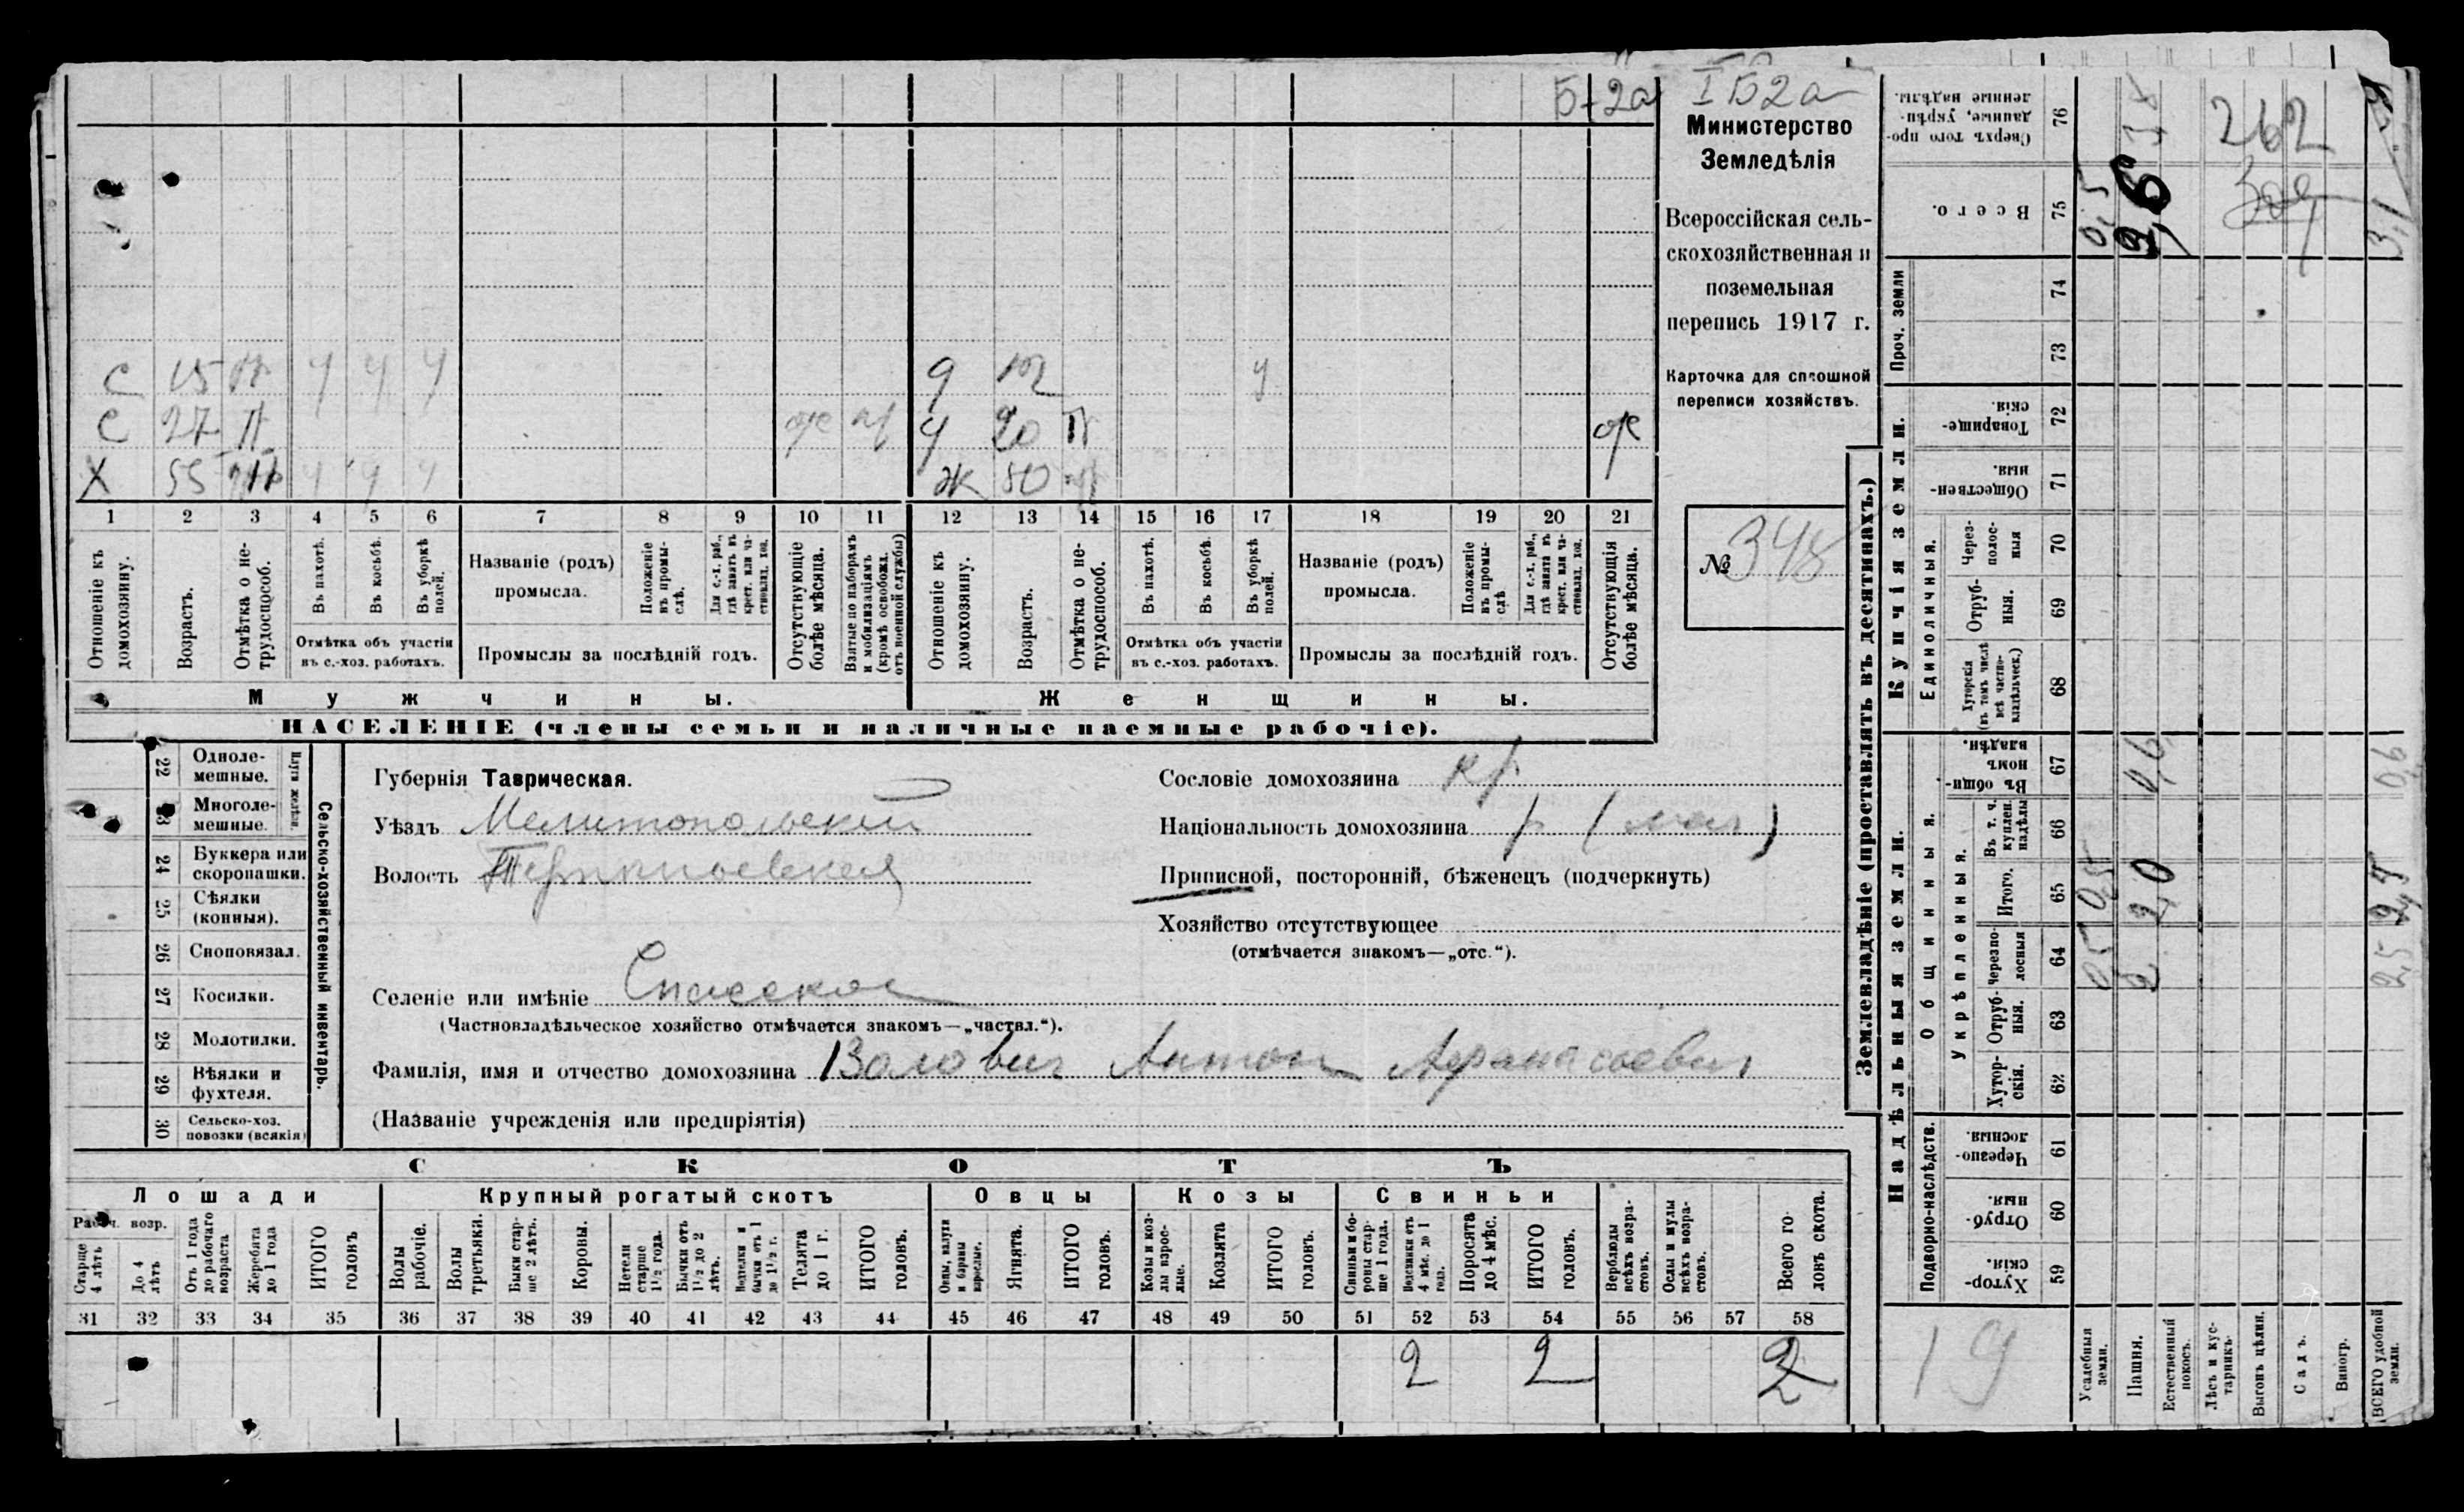 Б-2а
І Б 2а
Министерство
Земледѣлія
Всероссійская сель-
скохозяйственная и
поземельная
перепись 1917 г.
Карточка для сплошной
переписи хозяйствъ.
№ 348
С 15 У У У 9 12 У
С 27 П 20 П
Х 55 У У У Ж 50
1 2 3 4 5 6 7 8 9 10 11 12 13 14 15 16 17 18 19 20 21
Отношеніе къ домохозяину.
Возрастъ.
Отмѣтка о не-трудоспособ.
Въ пахотѣ.
Въ косьбѣ.
Въ уборкѣ полей.
Отмѣтка объ участіи
въ с.-хоз. работахъ.
Названіе (родъ)
промысла.
Положеніе въ промы-слѣ.
Для с.-х. раб., гдѣ занятъ въ крест. или ча-стновлад. хоз.
Промыслы за послѣдній годъ.
Отсутствующіе болѣе мѣсяца.
Взятые по наборамъ и мобилизаціямъ (кромѣ освобожд. отъ военной службы)
Отношеніе къ домохозяину.
Возрастъ.
Отмѣтка о не-трудоспособ.
Въ пахотѣ.
Въ косьбѣ.
Въ уборкѣ полей.
Отмѣтка объ участіи
въ с.-хоз. работахъ.
Названіе (родъ)
промысла.
Положеніе въ промы-слѣ
Для с.-х. раб., гдѣ занята въ крест. или ча-стновлад. хоз.
Промыслы за послѣдній годъ.
Отсутствующія болѣе мѣсяца.
Мужчины. Женщины.
НАСЕЛЕНІЕ (члены семьи и наличные наемные рабочіе).
22 Одноле-
мешные.
23 Многоле-
мешные.
Плуги желѣзн.
24 Буккера или
скоропашки.
25 Сѣялки
(конныя).
26 Сноповязал.
27 Косилки.
28 Молотилки.
29 Вѣялки и
фухтеля.
30 Сельско-хоз.
повозки (всякія)
Сельско-хозяйственный инвентарь.
Губернія Таврическая.
Уѣздъ Мелитопольскій
Волость Терпеньевская
Селеніе или имѣніе Спасское
(Частновладѣльческое хозяйство отмѣчается знакомъ—„частвл.“).
Фамилія, имя и отчество домохозяина Валович Антон Афанасьевич
(Названіе учрежденія или предпріятія)
Сословіе домохозяина кр.
Національность домохозяина р (мал)
Приписной, посторонній, бѣженецъ (подчеркнуть)
Хозяйство отсутствующее
(отмѣчается знакомъ—„отс.“).
СКОТЪ
Лошади Крупный рогатый скотъ Овцы Козы Свиньи
Рабоч. возр.
Старше 4 лѣтъ
До 4 лѣтъ
Отъ 1 года до рабочаго возраста
Жеребята до 1 года
ИТОГО головъ
Волы рабочіе.
Волы третьяки.
Быки стар-ше 2 лѣтъ.
Коровы.
Нетели старше 1½ года.
Бычки отъ 1½ до 2 лѣтъ.
Подтелки и бычки отъ 1 до 1½ г.
Телята до 1 г.
ИТОГО головъ.
Овцы, валухи и бараны взрослые.
Ягнята.
ИТОГО головъ.
Козы и коз-лы взрос-лые.
Козлята
ИТОГО головъ.
Свиньи и бо-роны стар-ше 1 года.
Подсвинки отъ 4 мѣс. до 1 года.
Поросята до 4 мѣс.
ИТОГО головъ.
Верблюды всѣхъ возра-стовъ.
Ослы и мулы всѣхъ возра-стовъ.
Всего го-ловъ скота.
31 32 33 34 35 36 37 38 39 40 41 42 43 44 45 46 47 48 49 50 51 52 53 54 55 56 57 58
2 2 2
Землевладѣніе (проставлять въ десятинахъ.)
Надѣльныя земли. Купчія земли. Проч. земли
Подворно-наслѣдств.
Общинныя.
Укрѣпленныя.
Единоличныя.
Сверхъ того про-даныя, укрѣп-ленные надѣлы. 76
Всего. 75
74
73
Товарище-скія. 72
Обществен-ныя. 71
Через-полос-ныя 70
Отруб-ныя. 69
Хуторскія (въ томъ числѣ всѣ частно-владѣльческ.) 68
Въ общин-номъ владѣн. 67
Въ т. ч. куплен. надѣлы 66
Итого. 65
Черезпо-лосныя 64
Отруб-ныя. 63
Хутор-скія. 62
Черезпо-лосныя. 61
Отруб-ныя. 60
Хутор-скія. 59
Усадебныя земли.
Пашня.
Естественный покосъ.
Лѣсъ и кус-тарникъ.
Выгонъ цѣлин.
Садъ.
Виногр.
ВСЕГО удобной земли.
0,5 2,6 3,1
262
0,6 0,6
0,5 2,0 2,5
0,5 2 2,5
19